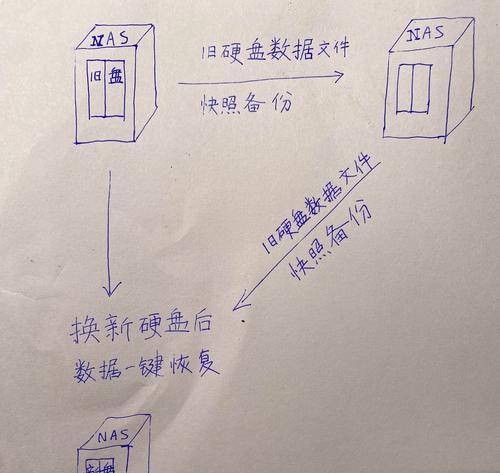 NAS
旧盘
旧硬盘数据文件
快照备份
NAS
旧硬盘数据文件
快照备份
换新硬盘后
数据一键恢复
NAS